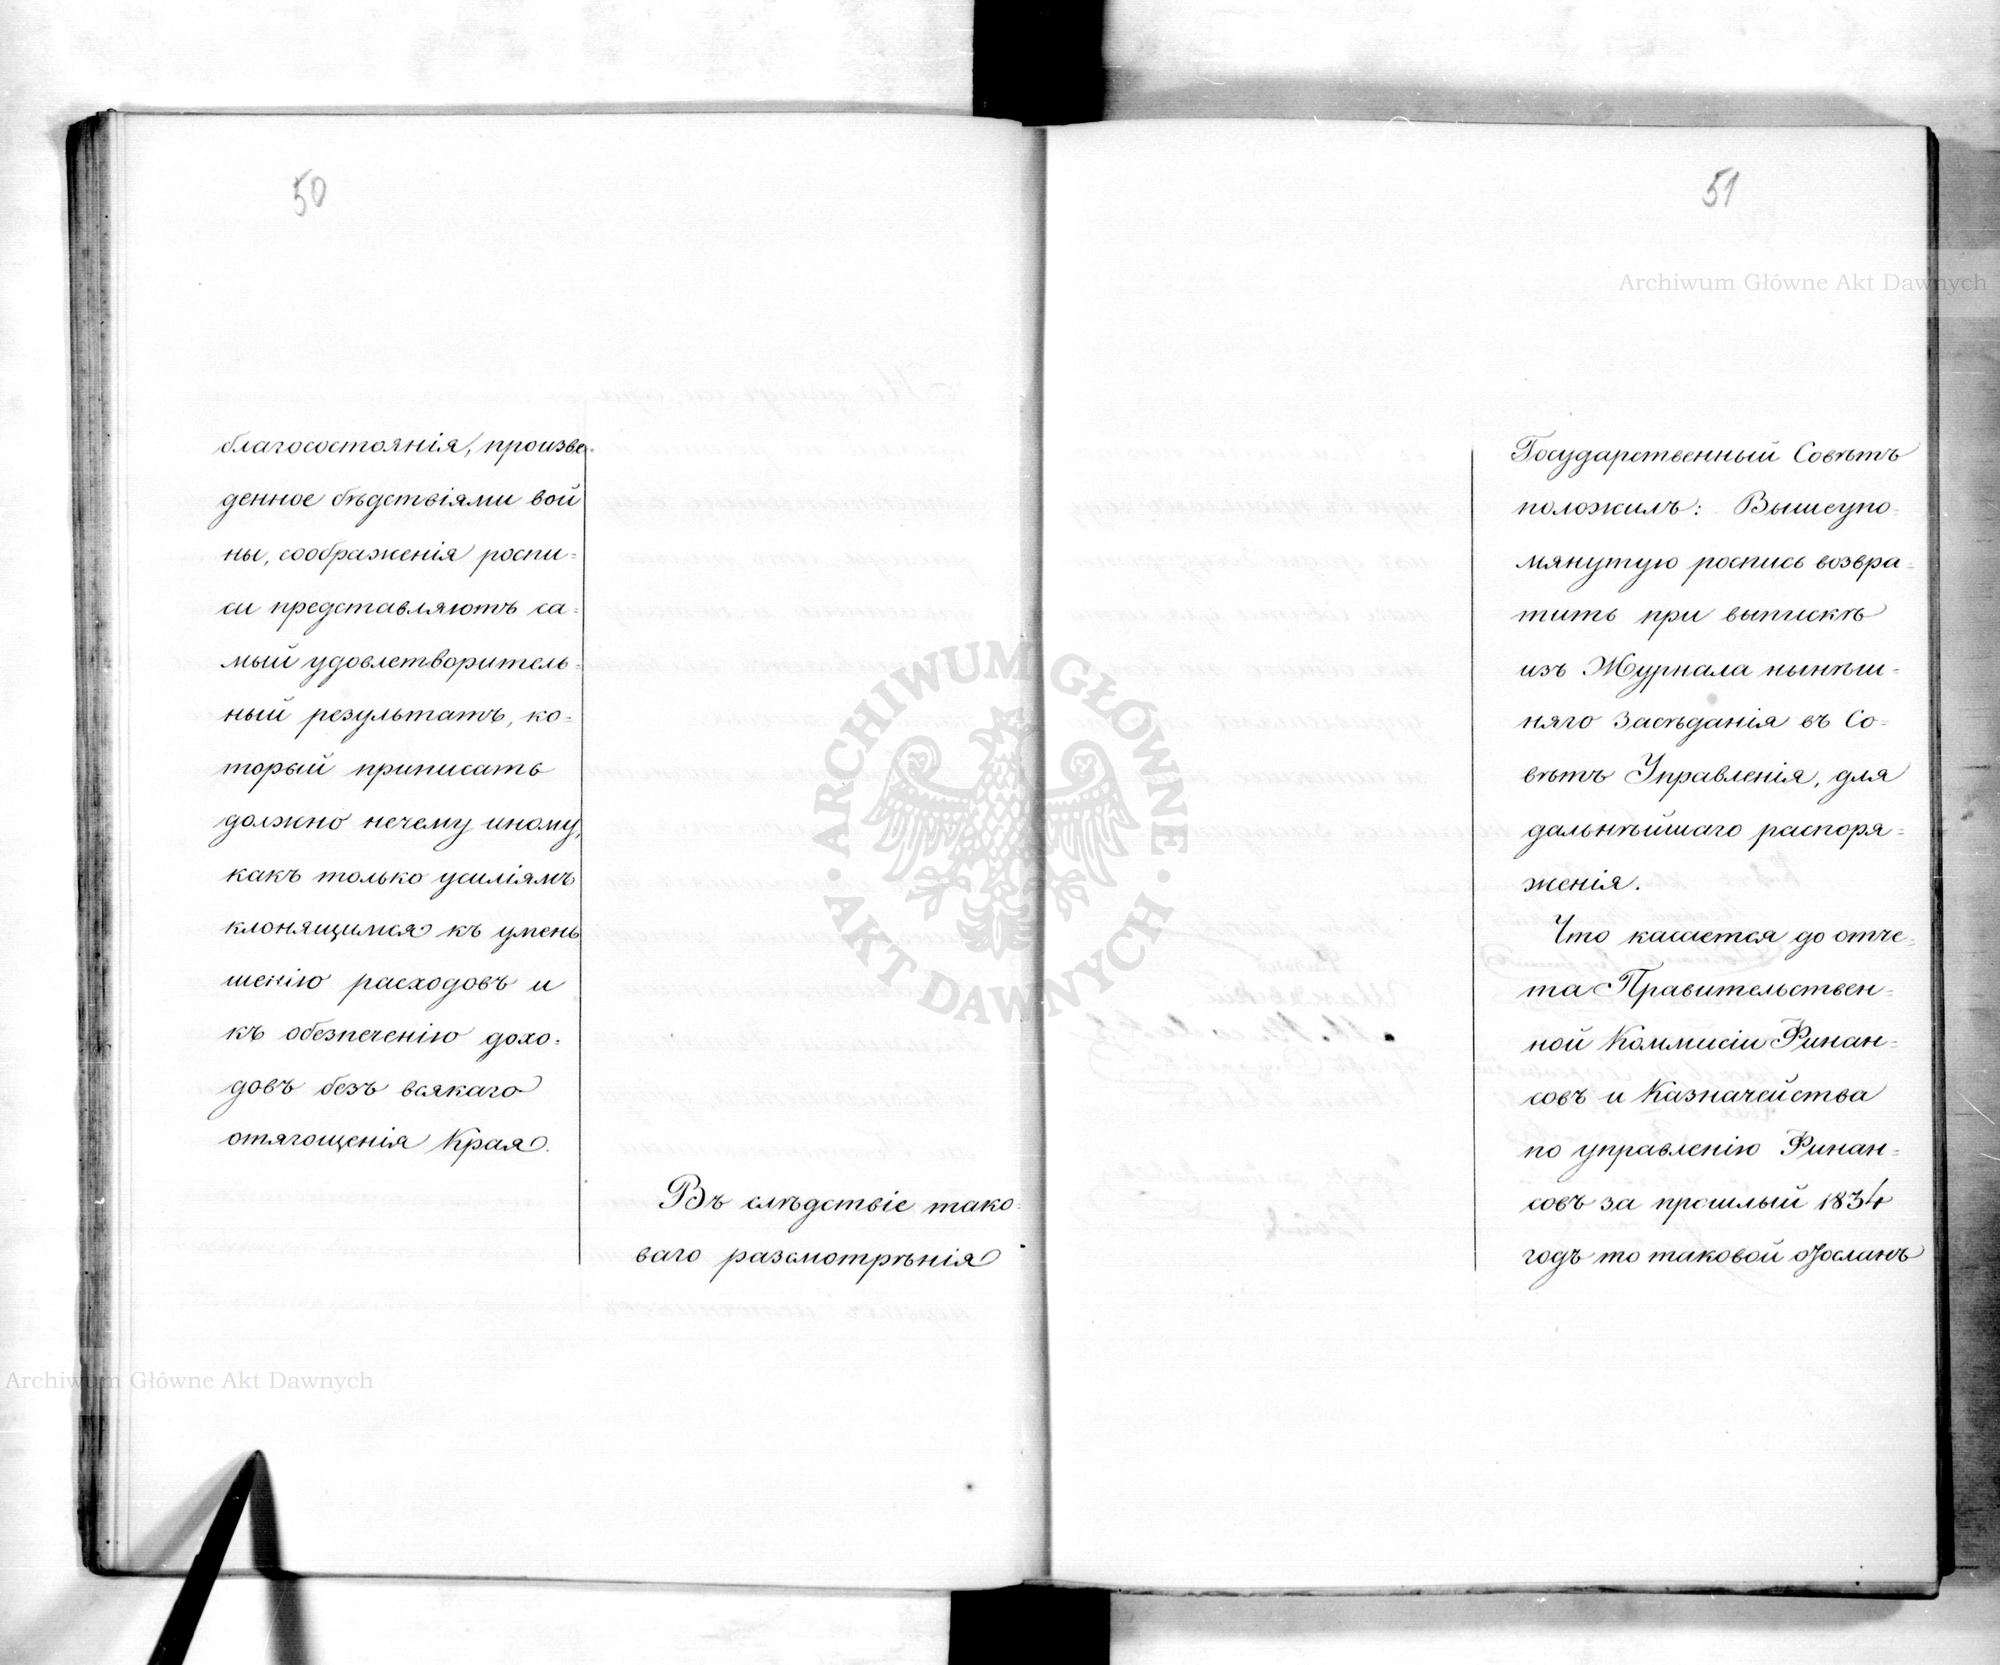 50
благосостоянія, произве-
денное бѣдствіями вой
ны, соображенія роспи=
си представляютъ са=
мый удовлетворитель=
ный результатъ, ко=
торый приписать
должно нечему иному,
какъ только усиліямъ
клонящимся къ умень
шенію расходовъ и
къ обезпеченію дохо=
довъ безъ всякаго
отягощенія Края.
Въ слѣдствіе тако=
ваго разсмотрѣнія
51
Государственный Совѣтъ
положилъ: Вышеупо=
мянутую роспись возвра=
тить при выпискѣ
изъ Журнала нынѣш=
няго Засѣданія въ Со=
вѣтъ Управленія, для
дальнѣйшаго распоря=
женія.
Что касается до отче=
та Правительствен=
ной Коммисіи Финан=
совъ и Казначейства
по управленію Финан=
совъ за прошлый 1834
годъ то таковой отосланъ
Archiwum Główne Akt Dawnych
ARCHIWUM GŁÓWNE
AKT DAWNYCH
Archiwum Główne Akt Dawnych